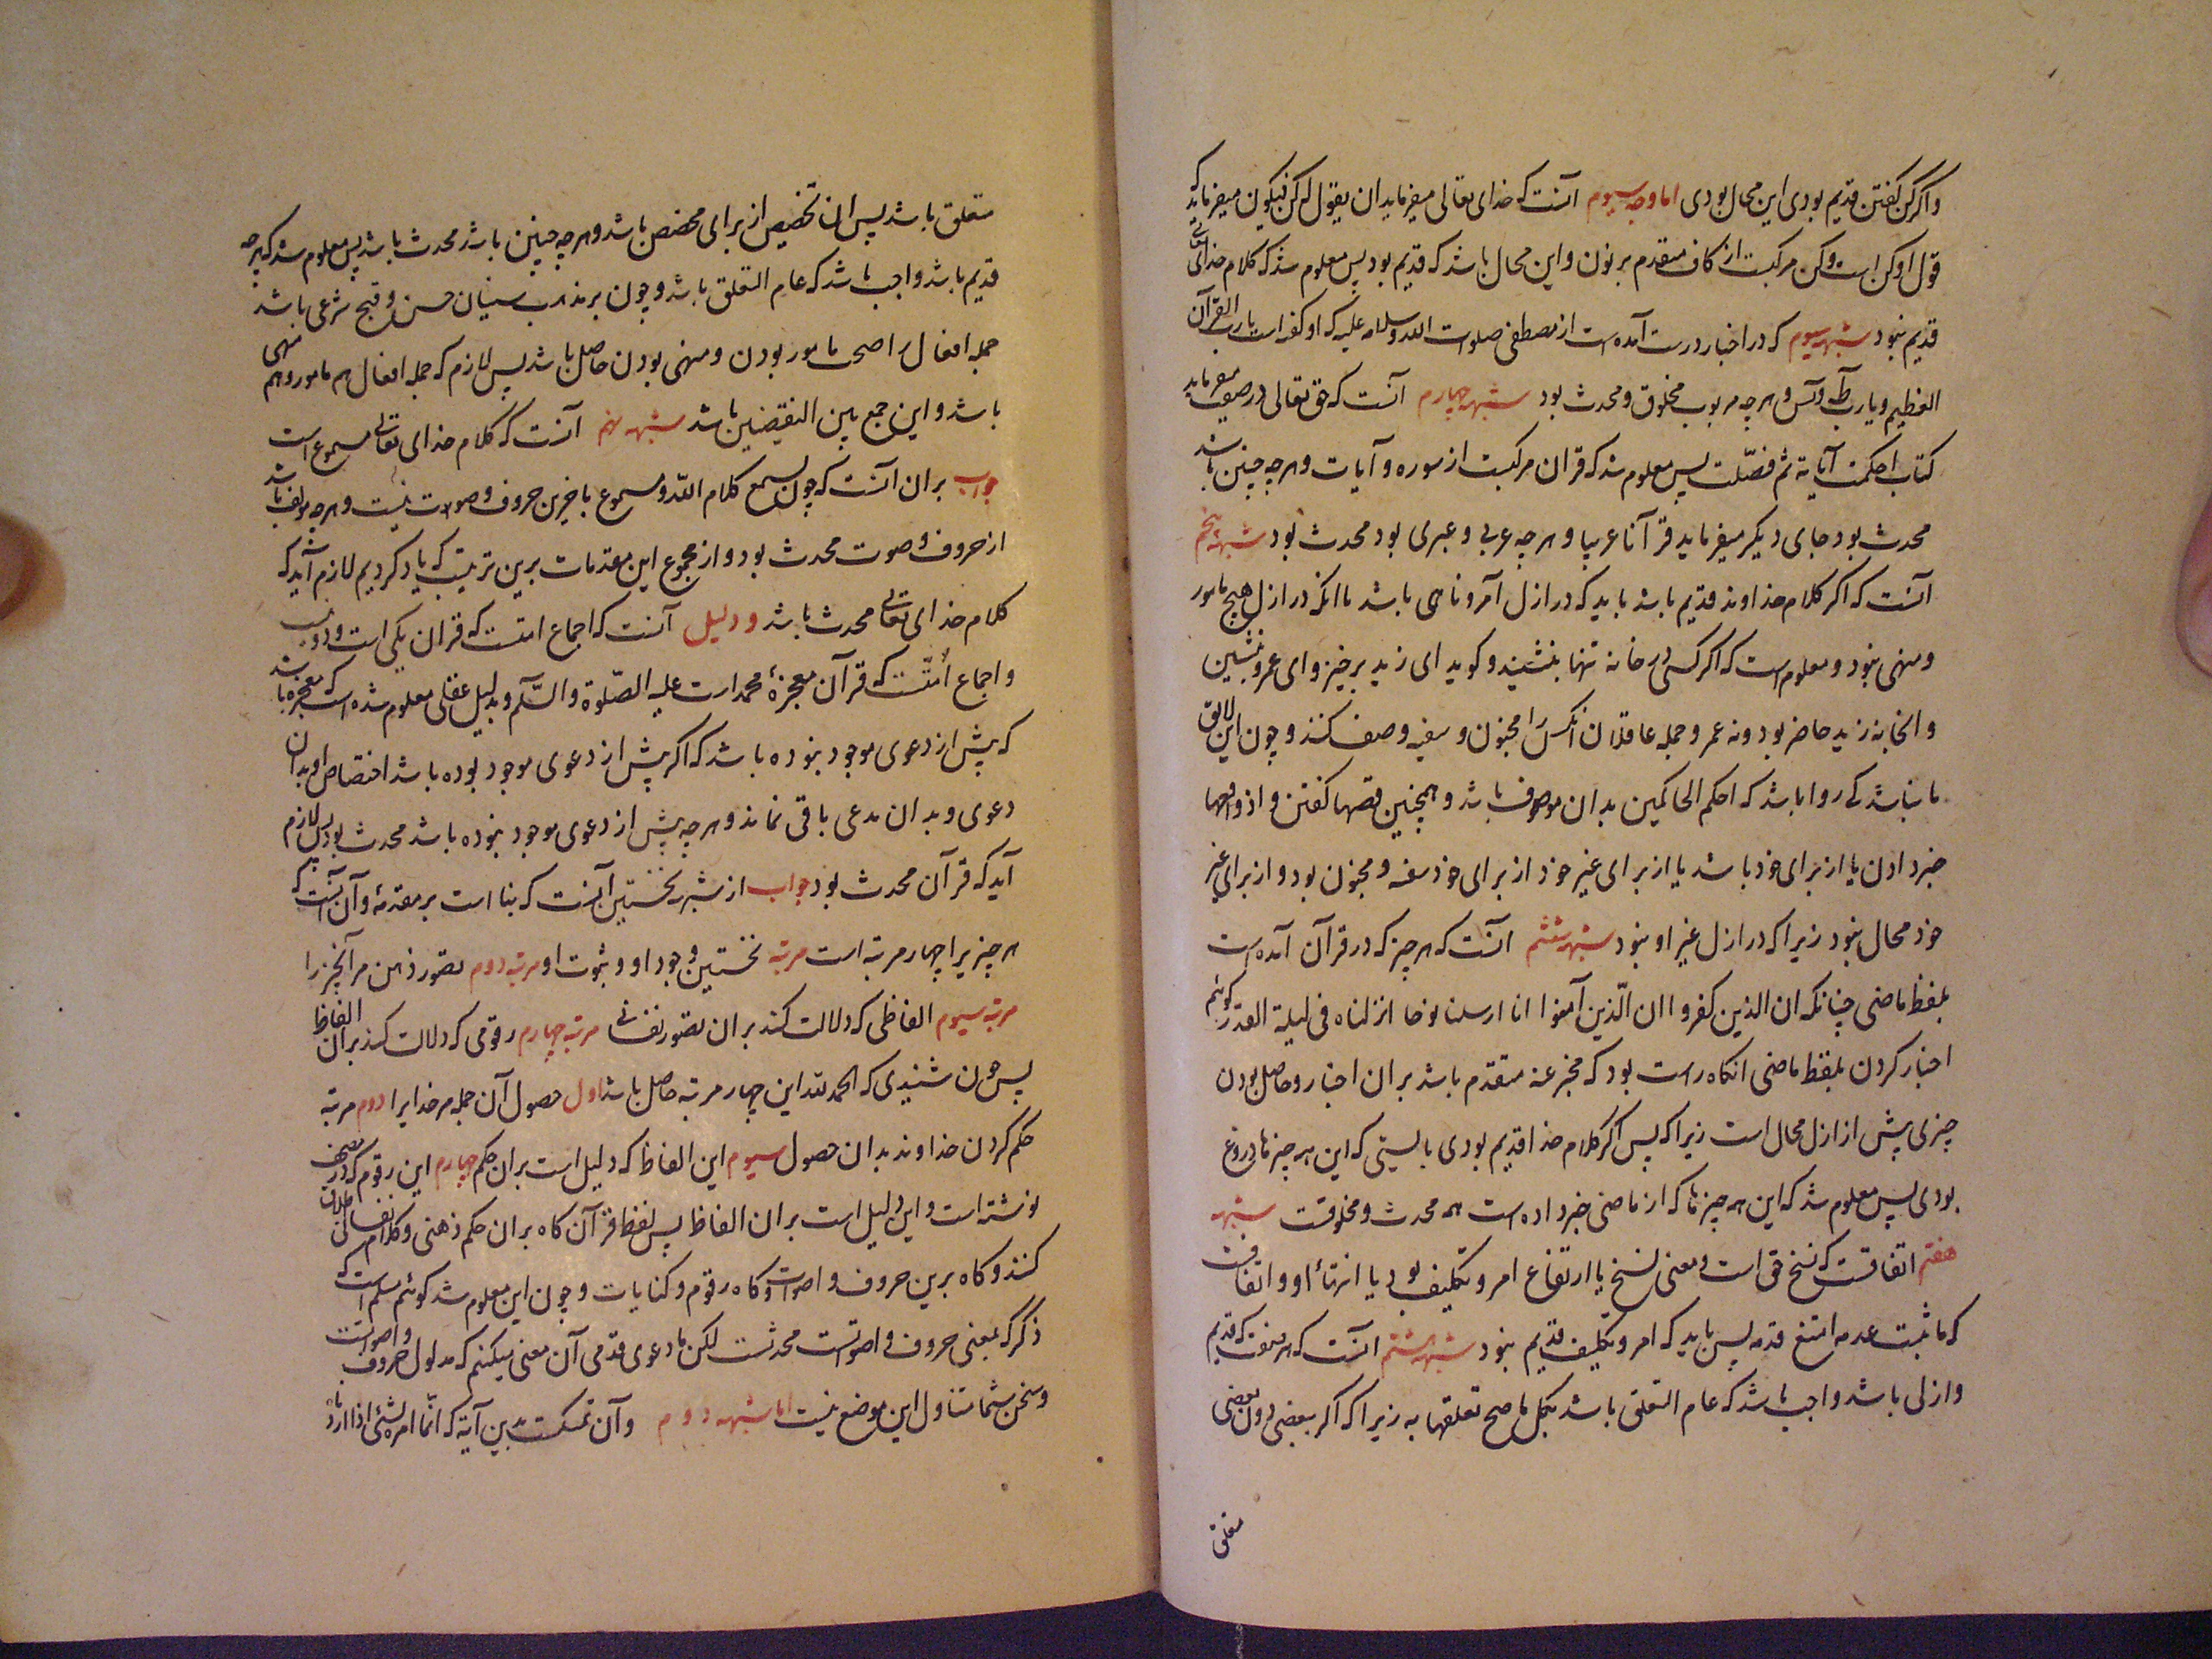 واگر کن گفتن قدیم بودی این محال بودی اما وجه سیوم آنست که خدای تعالی میفرماید ان یقول له کن فیکون میفرماید که
قول او کن است و کن مرکبست از کاف متقدم بر نون و این محال باشد که قدیم بود پس معلوم شد که کلام خدای تعالی
قدیم نبود شبهه سیوم که در اخبار درست آمده است از مصطفی صلوات الله و سلامه علیه که او گفته است یا رب القرآن
العظیم و یا رب طه و یس و هر چه مربوب مخلوق و محدث بود شبهه چهارم آنست که حق تعالی در صفت میفرماید
کتاب احکمت آیاته ثم فصّلت پس معلوم شد که قران مرکبست از سوره و آیات و هر چه چنین باشد
محدث بود جای دیگر میفرماید قرآنا عربیا و هر چه عربی و عبری بود محدث بود شبهه پنجم
آنست که اگر کلام خداوند قدیم باشد باید که در ازل آمر و ناهی باشد با انکه در ازل هیچ مامور
و منهی نبود و معلوم است که اگر کسی در خانه تنها بنشیند و گوید ای زید برخیز و ای عمرو بنشین
و انجا نه زید حاضر بود و نه عمر و جمله عاقلان انکس را مجنون و سفیه وصف کنند و چون این لایق
ما نباشد کی روا باشد که احکم الحاکمین بدان موصوف باشد و همچنین قصها گفتن و از واقعها
خبر دادن یا از برای خود باشد یا از برای غیر خود از برای خود سفه و مجنون بود و از برای غیر
خود محال بود زیرا که در ازل غیر او نبود شبهه ششم آنست که هر چیز که در قرآن آمده است
بلفظ ماضی چنانکه ان الذین کفروا ان الّذین آمنوا انا ارسلنا نوحا انزلناه فی لیلة القدر گوئیم
اخبار کردن بلفظ ماضی انگاه راست بود که مخبر عنه متقدم باشد بر ان اخبار و حاصل بودن
چیزی پیش از ازل محال است زیرا که پس اگر کلام خدا قدیم بودی بایستی که این هر چیزها دروغ
بودی پس معلوم شد که این همه چیزها که از ماضی خبر داده است همه محدث و مخلوقست شبهه
هفتم اتفاقست که نسخ حق است و معنی نسخ یا ارتفاع امر و تکلیف بود یا انتهاء او و اتفاقست
که ما ثبت عدمه امتنع قدمه پس باید که امر و تکلیف قدیم نبود شبهه هشتم آنست که هر صفت که قدیم
و ازلی باشد واجب باشد که عام التعلق باشد بکل ما صح تعلقها به زیرا که اگر بعضی دون بعضی
متعلق
متعلق باشد پس ان تخصیص از برای مخصص باشد و هر چه چنین باشد محدث باشد پس معلوم شد که هر چه
قدیم باشد واجب باشد که عام التعلق باشد و چون بر مذهب سنیان حسن و قبح شرعی باشد
جمله افعال را صحت مامور بودن و منهی بودن حاصل باشد پس لازم که جمله افعال هم مامور و هم منهی
باشد و این جمع بین النقیضین باشد شبهه نهم آنست که کلام خدای تعالی مسموع است
جواب بران آنست که چون یسمع کلام الله و مسموع باخیرین حروف و صوات نیست و هر چه مولف باشد
از حروف و صوت محدث بود و از مجموع این مقدمات برین ترتیب که یاد کردیم لازم آید که
کلام خدای تعالی محدث باشد و دلیل آنست که اجماع امتست که قران یکی است و دو نیست
و اجماع اُمّتست که قرآن معجزهٔ محمد است علیه الصّلوة و السّلام و بدلیل عقلی معلوم شده است که معجزه باشد
که پیش از دعوی موجود نبوده باشد که اگر پیش از دعوی موجود بوده باشد اختصاص او بدان
دعوی و بدان مدعی باقی نماند و هر چه پیش از دعوی موجود نبوده باشد محدث بود پس لازم
آید که قرآن محدث بود جواب از شبهه نخستین آنست که بنا است بر مقدمه و آن آنست که
هر چیزیرا چهار مرتبه است مرتبه نخستین وجود او و ثبوت او مرتبه دوم تصور ذهن مر آنچیز را
مرتبه سیوم الفاظی که دلالت کند بر ان تصور نفسانی مرتبه چهارم رقومی که دلالت کند بر ان الفاظ
پس چون شنیدی که الحمد لله این چهار مرتبه حاصل باشد اول حصول آن جمله مر خدایرا دوم مرتبه
حکم کردن خداوند بدان حصول سیوم این الفاظ که دلیل است بران حکم چهارم این رقوم که در مصحف
نوشته است و این دلیل است بران الفاظ پس لفظ قرآن گاه بران حکم ذهنی و کلام نفسانی اطلاق
کنند و گاه برین حروف و اصوات و گاه رقوم و کنایات و چون این معلوم شد گوئیم مسلم است که
ذکر که بمعنی حروف و اصواتست محدثست لکن ما دعوی قدمی آن معنی میکنیم که مدلول حروف و اصواتست
و سخن شما متناول این موضع نیست اما شبهه دوم و آن تمسکست بدین آیة که انّما امره لشیٔ اذا اردناه